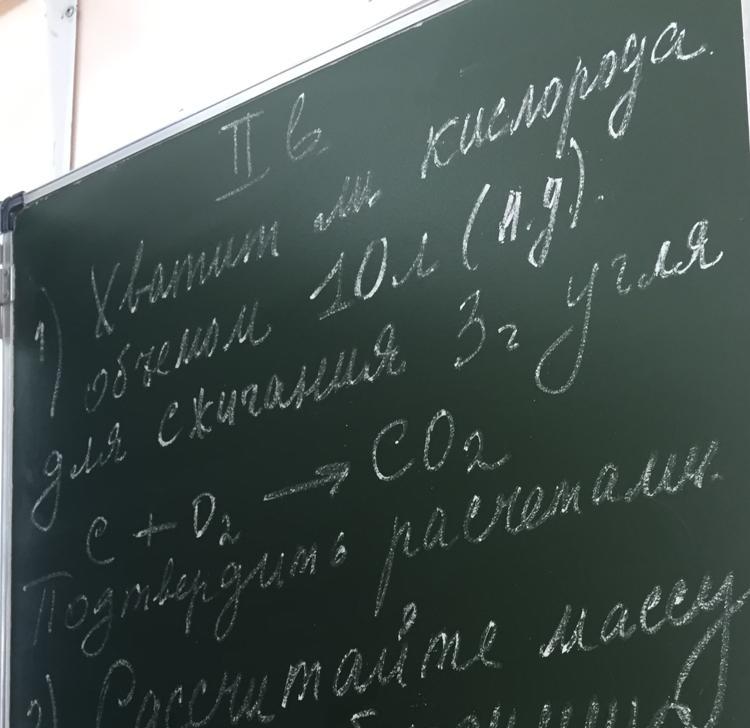 II в
1) Хватит ли кислорода
объемом 10л (н.у).
для сжигания 3г угля
C + O2 → CO2
Подтвердить расчетами.
2) Рассчитайте массу